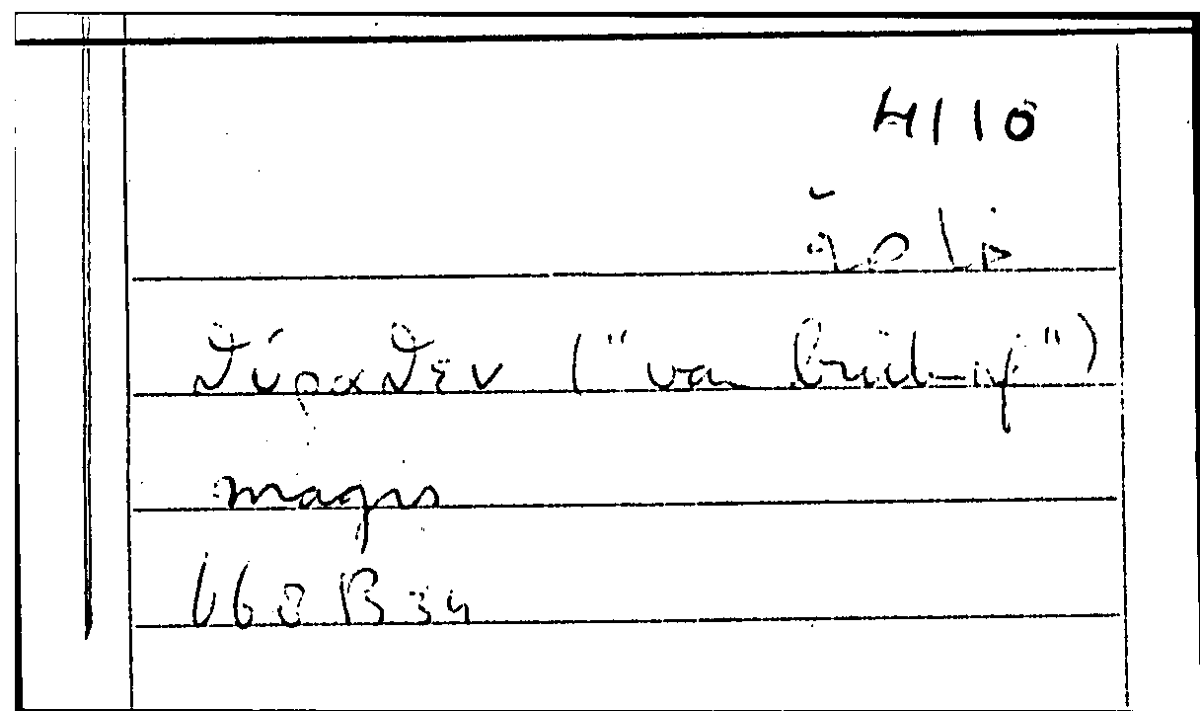 4110
θύραθεν ("van buiten af")
magis
668 B 34